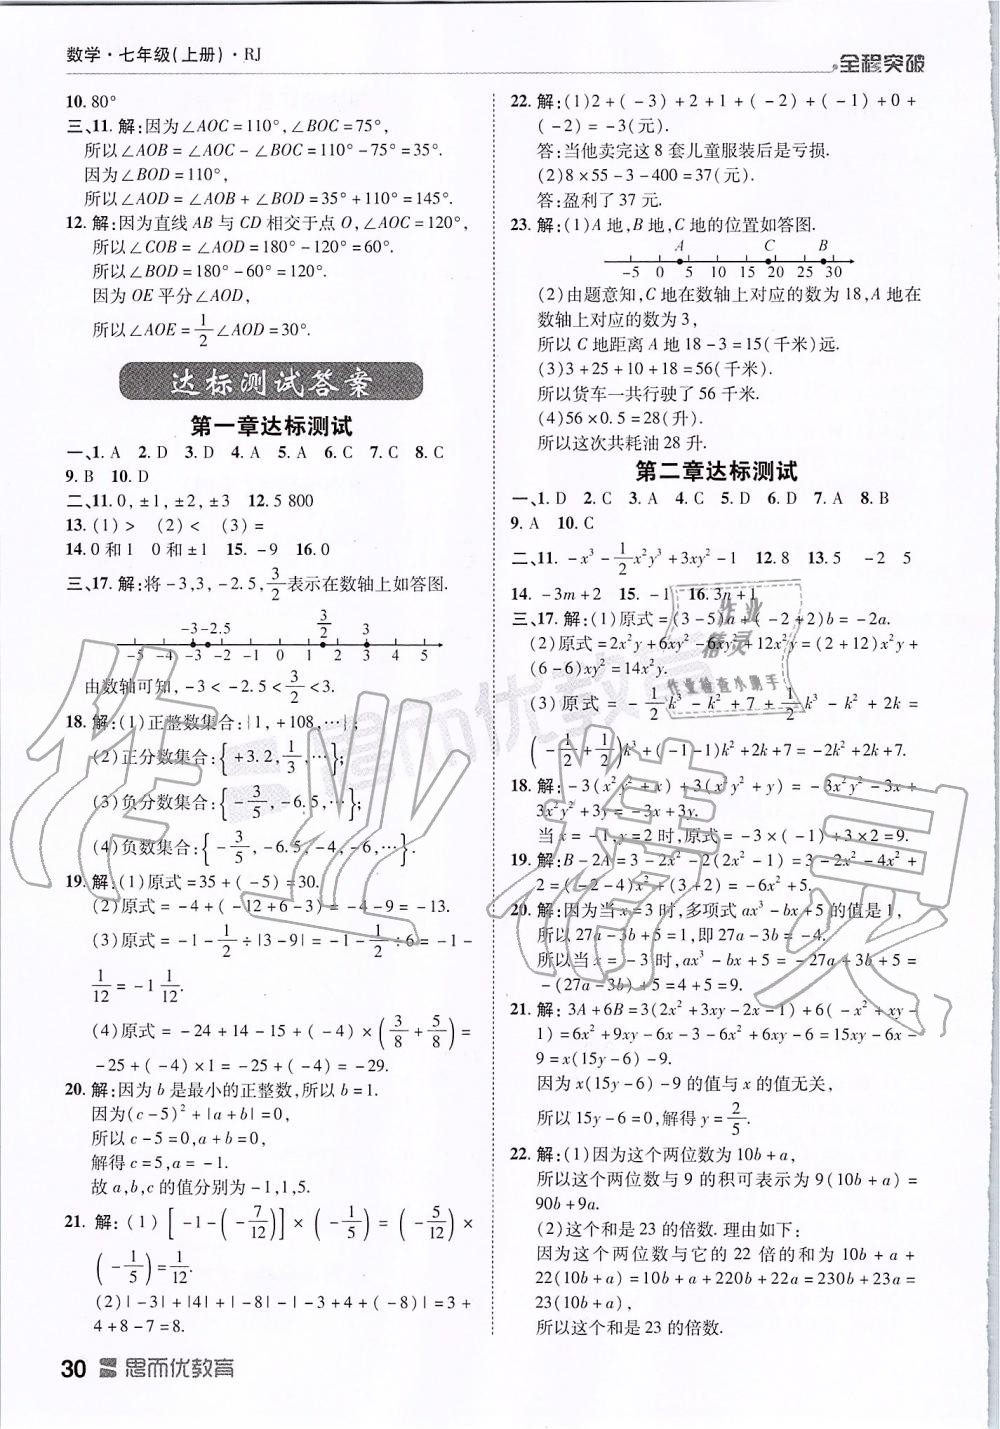 数学·七年级(上册)·RJ
全程突破
10. 80°
三、11. 解:因为∠AOC=110°,∠BOC=75°,
所以∠AOB=∠AOC-∠BOC=110°-75°=35°.
因为∠BOD=110°,
所以∠AOD=∠AOB+∠BOD=35°+110°=145°.
12. 解:因为直线 AB 与 CD 相交于点 O,∠AOC=120°,
所以∠COB=∠AOD=180°-120°=60°.
所以∠BOD=180°-60°=120°.
因为 OE 平分∠AOD,
所以∠AOE=1/2∠AOD=30°.
达标测试答案
第一章达标测试
一、1. A 2. D 3. D 4. A 5. A 6. C 7. C 8. C
9. B 10. D
二、11. 0,±1,±2,±3 12. 5 800
13. (1)> (2)< (3)=
14. 0 和 1 0 和±1 15. -9 16. 0
三、17. 解:将-3,3,-2.5,3/2表示在数轴上如答图.
-3 -2.5 3/2
-5 -4 -3 -2 -1 0 1 2 3 4 5
由数轴可知,-3<-2.5<3/2<3.
18. 解:(1)正整数集合:{1,+108,…};
(2)正分数集合:{+3.2,1/3,…};
(3)负分数集合:{-3/5,-6.5,…};
(4)负数集合:{-3/5,-6.5,-4,-6,…}.
19. 解:(1)原式=35+(-5)=30.
(2)原式=-4+(-12+6-3)=-4-9=-13.
(3)原式=-1-1/2÷|3-9|=-1-1/2÷6=-1-
1/12=-1 1/12.
(4)原式=-24+14-15+(-4)×(3/8+5/8)=
-25+(-4)×1=-25+(-4)=-29.
20. 解:因为 b 是最小的正整数,所以 b=1.
因为(c-5)²+|a+b|=0,
所以 c-5=0,a+b=0,
解得 c=5,a=-1.
故 a,b,c 的值分别为-1,1,5.
21. 解:(1)[-1-(-7/12)]×(-1/5)=(-5/12)×
(-1/5)=1/12.
(2)|-3|+|4|+|-8|-|-3+4+(-8)|=3+
4+8-7=8.
22. 解:(1)2+(-3)+2+1+(-2)+(-1)+0+
(-2)=-3(元).
答:当他卖完这 8 套儿童服装后是亏损.
(2)8×55-3-400=37(元).
答:盈利了 37 元.
23. 解:(1)A 地,B 地,C 地的位置如答图.
A C B
-5 0 5 10 15 20 25 30
(2)由题意知,C 地在数轴上对应的数为 18,A 地在
数轴上对应的数为 3,
所以 C 地距离 A 地 18-3=15(千米)远.
(3)3+25+10+18=56(千米).
所以货车一共行驶了 56 千米.
(4)56×0.5=28(升).
所以这次共耗油 28 升.
第二章达标测试
一、1. D 2. C 3. A 4. C 5. D 6. D 7. A 8. B
9. A 10. C
二、11. -x³-1/2x²y³+3xy²-1 12. 8 13. 5 -2 5
14. -3m+2 15. -1 16. 3n+1
三、17. 解:(1)原式=(3-5)a+(-2+2)b=-2a.
(2)原式=2x²y+6xy²-6xy²+12x²y=(2+12)x²y+
(6-6)xy²=14x²y.
(3)原式=-1/2k³-k²+7+1/2k³-k²+2k=
(-1/2+1/2)k³+(-1-1)k²+2k+7=-2k²+2k+7.
18. 解:-3(x²y²+x)+3(x²y²+y)=-3x²y²-3x+
3x²y²+3y=-3x+3y.
当 x=-1,y=2时,原式=-3×(-1)+3×2=9.
19. 解:B-2A=3-2x-2(2x²-1)=3-2x-4x²+
2=(-2-4)x²+(3+2)=-6x²+5.
20. 解:因为当 x=3 时,多项式 ax³-bx+5 的值是 1,
所以 27a-3b+5=1,即 27a-3b=-4.
所以当 x=-3时,ax³-bx+5=-27a+3b+5=
-(27a-3b)+5=4+5=9.
21. 解:3A+6B=3(2x²+3xy-2x-1)+6(-x²+xy-
1)=6x²+9xy-6x-3-6x²+6xy-6=15xy-6x-
9=x(15y-6)-9.
因为 x(15y-6)-9 的值与 x 的值无关,
所以 15y-6=0,解得 y=2/5.
22. 解:(1)因为这个两位数为 10b+a,
所以这个两位数与 9 的积可表示为 9(10b+a)=
90b+9a.
(2)这个和是 23 的倍数. 理由如下:
因为这个两位数与它的 22 倍的和为 10b+a+
22(10b+a)=10b+a+220b+22a=230b+23a=
23(10b+a),
所以这个和是 23 的倍数.
30 思而优教育
思而优教育
作业精灵
作业
精灵
作业检查小助手